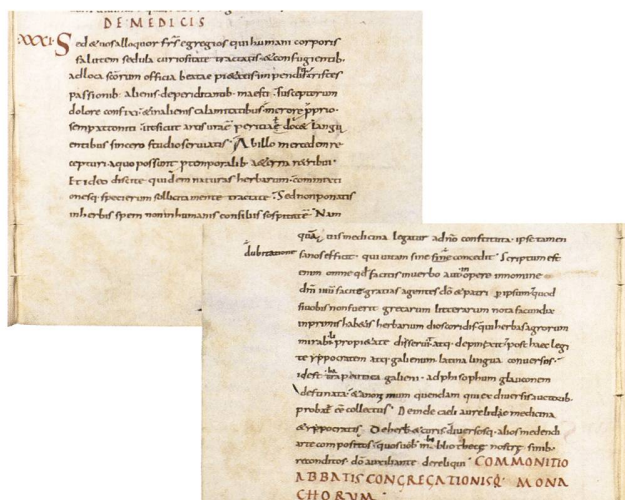 DE MEDICIS
XXXI· Sed & uos alloquor frs egregios qui humani corporis
salutem sedula curiositate tractatis & confugientib;
ad loca scorum officia beatae pi&atis impenditis tristes
passionib· alienis de periclitantib· maesti susceptorum
dolore confixi & in alienis calamitatibus merore pprio·
semp attoniti
sincero studio seruiatis Ab illo mercedem re
cepturi a quo possunt p temporalib· a&erna r&ribui·
Et ideo discite quidem naturas herbarum commixti
onesq; specierum sollicita mente tractate Sed non ponatis
in herbis spem non in humanis consiliis sospitate Nam
quauis medicina legatur a dno constituta ipse tamen
dubitatione
sanos efficit qui uitam sine fine concedit Scriptum est
enim omne qd facitis in uerbo aut opere in nomine
dni facite gratias agentes do & patri p ipsum quod
si uobis non fuerit grecarum litterarum nota facundia
inprimis habetis herbarum dioscoridis qui herbas agrorum
mirabili propietate disseruit atq· depinxit post haec legi
te yppocratem atq· galienum latina lingua conuersos
idest galieni ad philsophum glauconem
destinata & anonimum quendam qui ex diuersis auctorib·
probat collectus Deinde caeli aurelii de medicina
& yppocratis De herb & curis diuersosq· alios medendi
arte compositos quos uobis in bliothecę nostrę sinib·
reconditos do auxiliante dereliqui COMMONITIO
ABBATIS CONGREGATIONISQ· MONA
CHORUM·